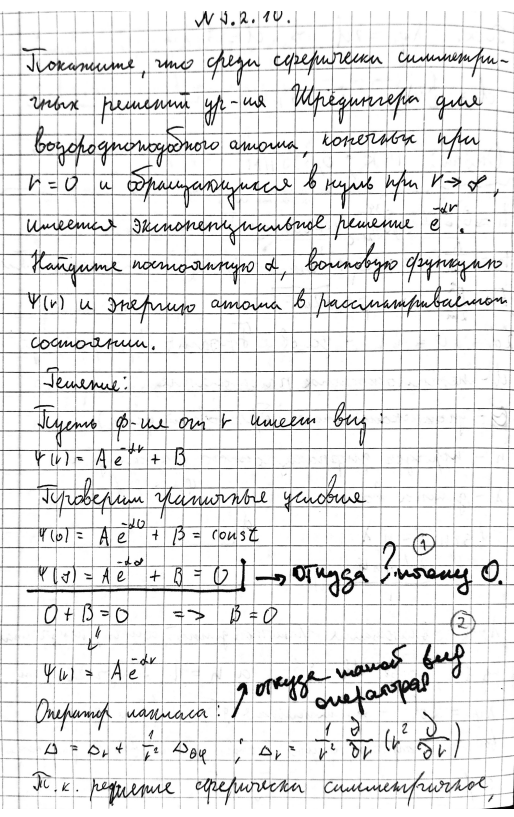 № 5.2.10.
Покажите, что среди сферически симметри-
чных решений ур-ия Шрёдингера для
водородноподобного атома, конечных при
r = 0 и обращающихся в нуль при r → ∞,
имеется экспоненциальное решение e^{-αr}.
Найдите постоянную α, волновую функцию
Ψ(r) и энергию атома в рассматриваемом
состоянии.
Решение:
Пусть ф-ия от r имеет вид:
Ψ(r) = A e^{-αr} + B
Проверим граничные условия
Ψ(0) = A e^{-α0} + B = const
Ψ(∞) = A e^{-α∞} + B = 0 → откуда ? почему 0. ①
0 + B = 0 => B = 0
②
Ψ(r) = A e^{-αr} откуда такой вид
оператора?
Оператор лапласа:
Δ = Δ_r + 1/r² Δ_θφ ; Δ_r = 1/r² ∂/∂r (r² ∂/∂r)
Т.к. решение сферически симметричное,